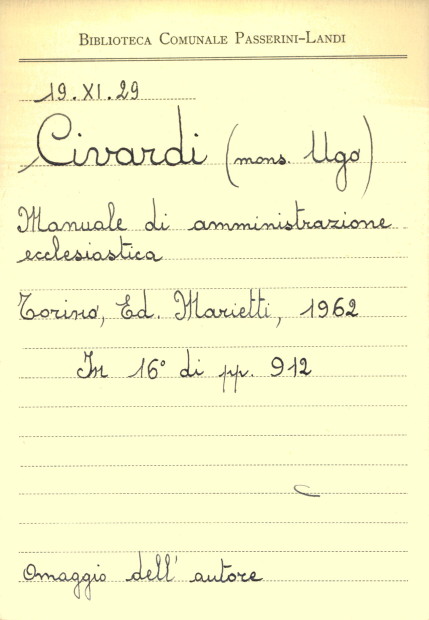 BIBLIOTECA COMUNALE PASSERINI-LANDI
19.XI.29
Civardi (mons. Ugo)
Manuale di amministrazione
ecclesiastica
Torino, Ed. Marietti, 1962
In 16° di pp. 912
Omaggio dell' autore